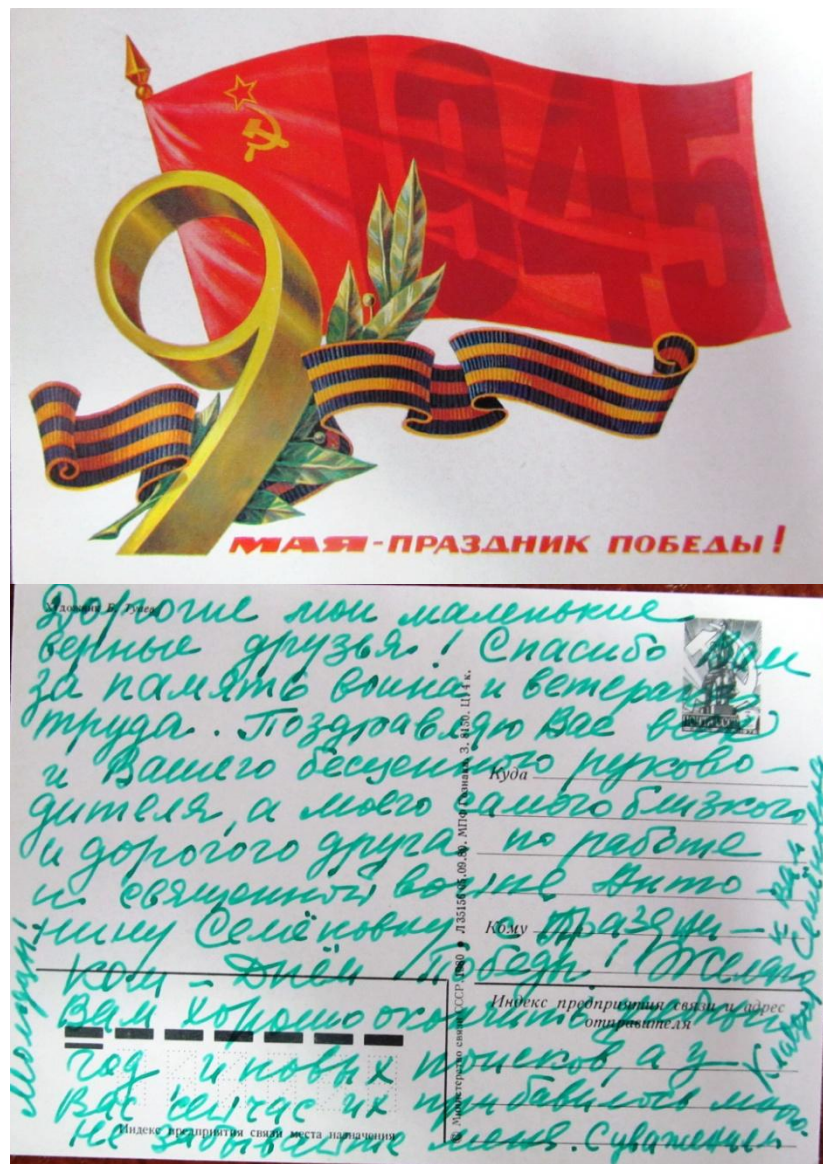 1945
9
МАЯ - ПРАЗДНИК ПОБЕДЫ!
Художник Б.
Дорогие мои маленькие
верные друзья! Спасибо Вам
за память воина и ветерана
труда. Поздравляю Вас всех
и Вашего бесценного руково-
дителя, а моего самого близкого
и дорогого друга по работе
и священной войне Анто-
нину Семёновну с праздни-
ком - Днём Победы! Желаю
Вам хорошо окончить учебный
год и новых поисков, а у
Вас сейчас их прибавилось много.
Не забывайте меня. С уважением
к вам
Клавдия Семёновна
Куда
Кому
Индекс предприятия связи и адрес
отправителя
Индекс предприятия связи места назначения
© Министерство связи СССР, 1980 МПФ Гознака. З. Ц. 4 к.